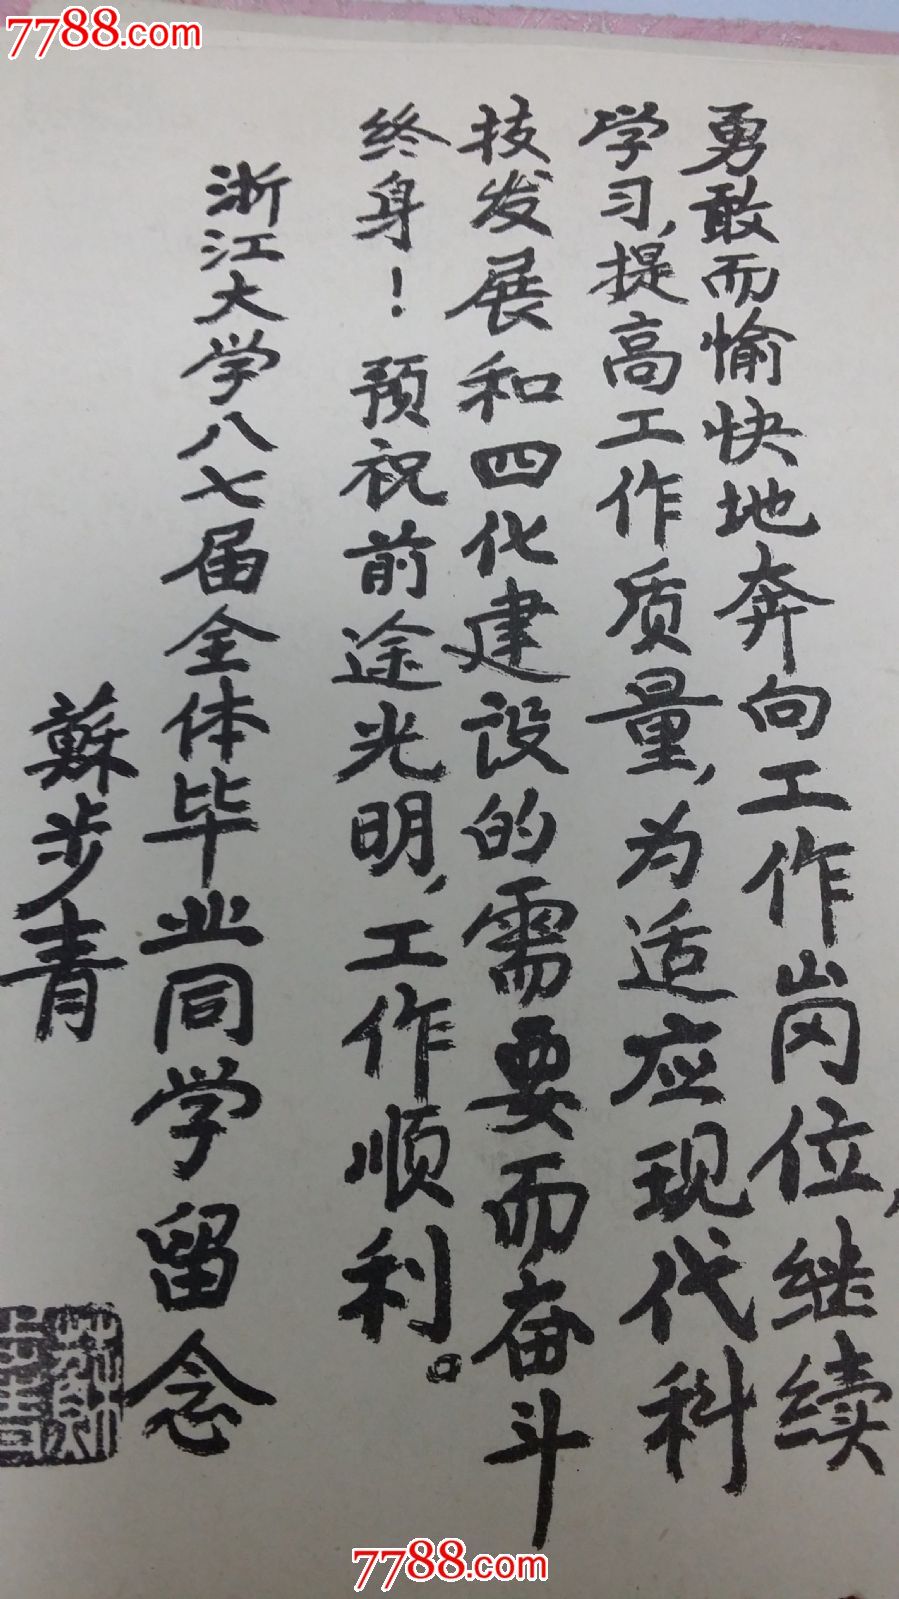 7788.com
勇敢而愉快地奔向工作岗位，继续
学习，提高工作质量，为适应现代科
技发展和四化建设的需要而奋斗
终身！预祝前途光明，工作顺利。
浙江大学八七届全体毕业同学留念
蘇步青
7788.com
7788.com